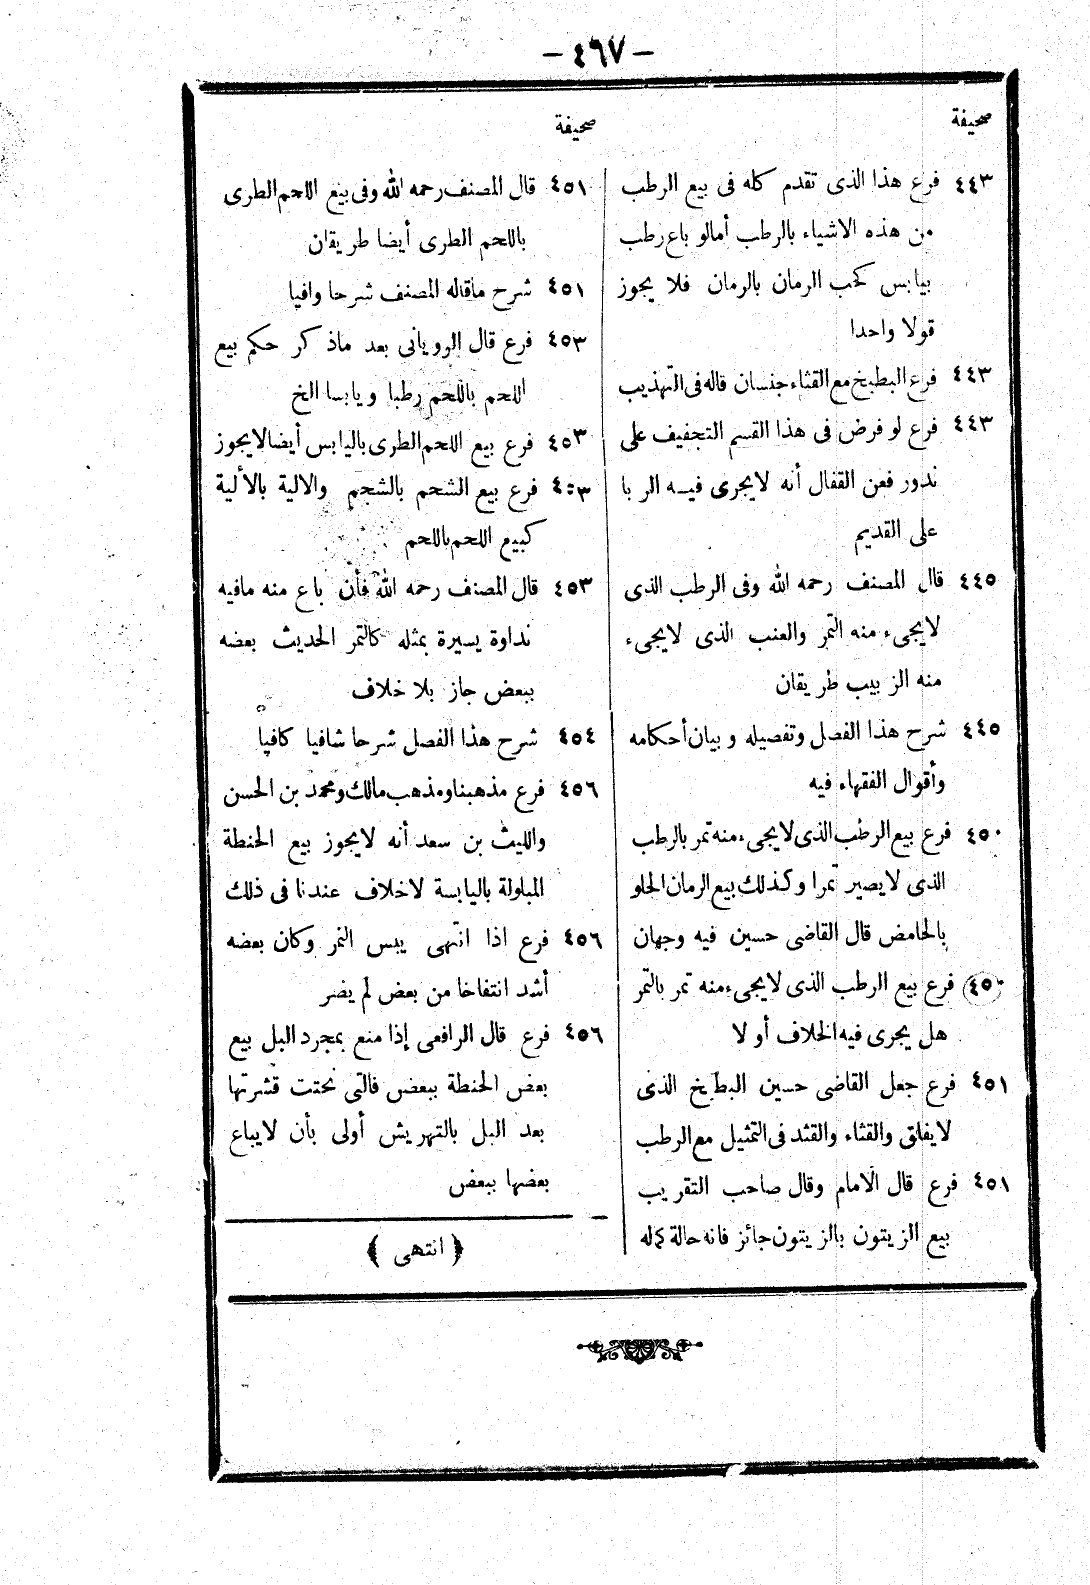 — ٤٦٧ —
صحيفة
٤٤٣ فرع هذا الذى تقدم كله فى بيع الرطب
من هذه الاشياء بالرطب أمالو باع رطب
بيابس كحب الرمان بالرمان فلا يجوز
قولا واحدا
٤٤٣ فرع البطيخ مع القثاء جنسان قاله فى التهذيب
٤٤٣ فرع لو فرض فى هذا القسم التجفيف على
ندور فعن القفال أنه لايجرى فيه الربا
على القديم
٤٤٥ قال المصنف رحمه الله وفى الرطب الذى
لايجىء منه التمر والعنب الذى لايجىء
منه الزبيب طريقان
٤٤٥ شرح هذا الفصل وتفصيله وبيان أحكامه
وأقوال الفقهاء فيه
٤٥٠ فرع بيع الرطب الذى لايجىء منه تمر بالرطب
الذى لايصير تمرا وكذلك بيع الرمان الحلو
بالحامض قال القاضى حسين فيه وجهان
٤٥٠ فرع بيع الرطب الذى لايجىء منه تمر بالتمر
هل يجرى فيه الخلاف أو لا
٤٥١ فرع جعل القاضى حسين البطيخ الذى
لايفلق والقثاء والقثد فى التمثيل مع الرطب
٤٥١ فرع قال الامام وقال صاحب التقريب
بيع الزيتون بالزيتون جائز فانه حالة كماله
صحيفة
٤٥١ قال المصنف رحمه الله وفى بيع اللحم الطرى
باللحم الطرى أيضا طريقان
٤٥١ شرح ماقاله المصنف شرحا وافيا
٤٥٣ فرع قال الرويانى بعد ماذكر حكم بيع
اللحم باللحم رطبا ويابسا الخ
٤٥٣ فرع بيع اللحم الطرى باليابس أيضا لايجوز
٤٥٣ فرع بيع الشحم بالشحم والالية بالألية
كبيع اللحم باللحم
٤٥٣ قال المصنف رحمه الله فأن باع منه مافيه
نداوة يسيرة بمثله كالتمر الحديث بعضه
ببعض جاز بلا خلاف
٤٥٤ شرح هذا الفصل شرحا شافيا كافيا
٤٥٦ فرع مذهبنا ومذهب مالك ومحمد بن الحسن
والليث بن سعد أنه لايجوز بيع الحنطة
المبلولة باليابسة لاخلاف عندنا فى ذلك
٤٥٦ فرع اذا انتهى يبس التمر وكان بعضه
أشد انتفاخا من بعض لم يضر
٤٥٦ فرع قال الرافعى إذا منع بمجرد البل بيع
بعض الحنطة ببعض فالتى نحتت قشرتها
بعد البل بالتهريش أولى بأن لايباع
بعضها ببعض
﴿ انتهى ﴾